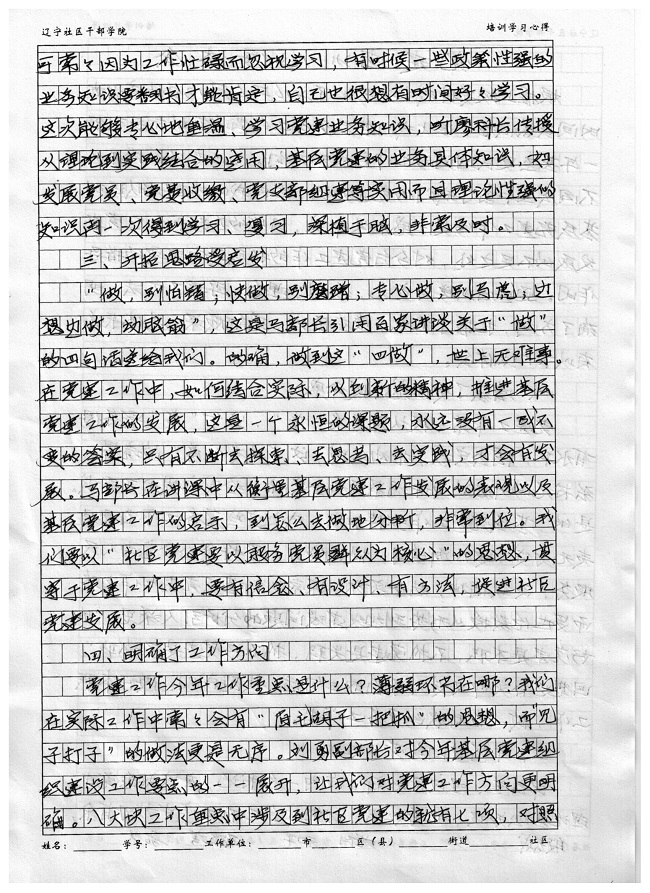 辽宁社区干部学院 培训学习心得
可常々因为工作忙碌而忽视学习，有时候一些政策性强的
业务知识要翻书才能肯定，自己也很想有时间好々学习。
这次能够专心地重温、学习党建业务知识，听廖科长传授
从理论到实践结合的运用，基层党建的业务具体知识，如
发展党员、党费收缴、党支部组建等实用而且理论性强的
知识再一次得到学习、复习，深植于脑，非常及时。
三、开拓思路受启发
“做，别怕错；快做，别磨蹭；专心做，别马虎；边
想边做，动脑筋”，这是马部长引用百家讲谈关于“做”
的四句话送给我们。的确，做到这“四做”，世上无难事。
在党建工作中，如何结合实际，以创新的精神，推进基层
党建工作的发展，这是一个永恒的课题，永远没有一成不
变的答案，只有不断去探索、去思考、去实践，才会有发
展。马部长在讲课中从衡量基层党建工作发展的表现以及
基层党建工作的启示，到怎么去做地分析，非常到位。我
们要以“社区党建要以服务党员群众为核心”的思想，贯
穿于党建工作中，要有信念、有设计、有方法，促进社区
党建发展。
四、明确了工作方向
党建工作今年工作重点是什么？薄弱环节在哪？我们
在实际工作中常々会有“眉毛胡子一把抓”的思想，而“兄
子打子”的做法更是无序。刘勇副部长对今年基层党建组
织建设工作要点的一一展开，让我们对党建工作方向更明
确。八大块工作重点中涉及到社区党建的就有七项，对照
姓名： 学号： 工作单位： 市 区（县） 街道 社区